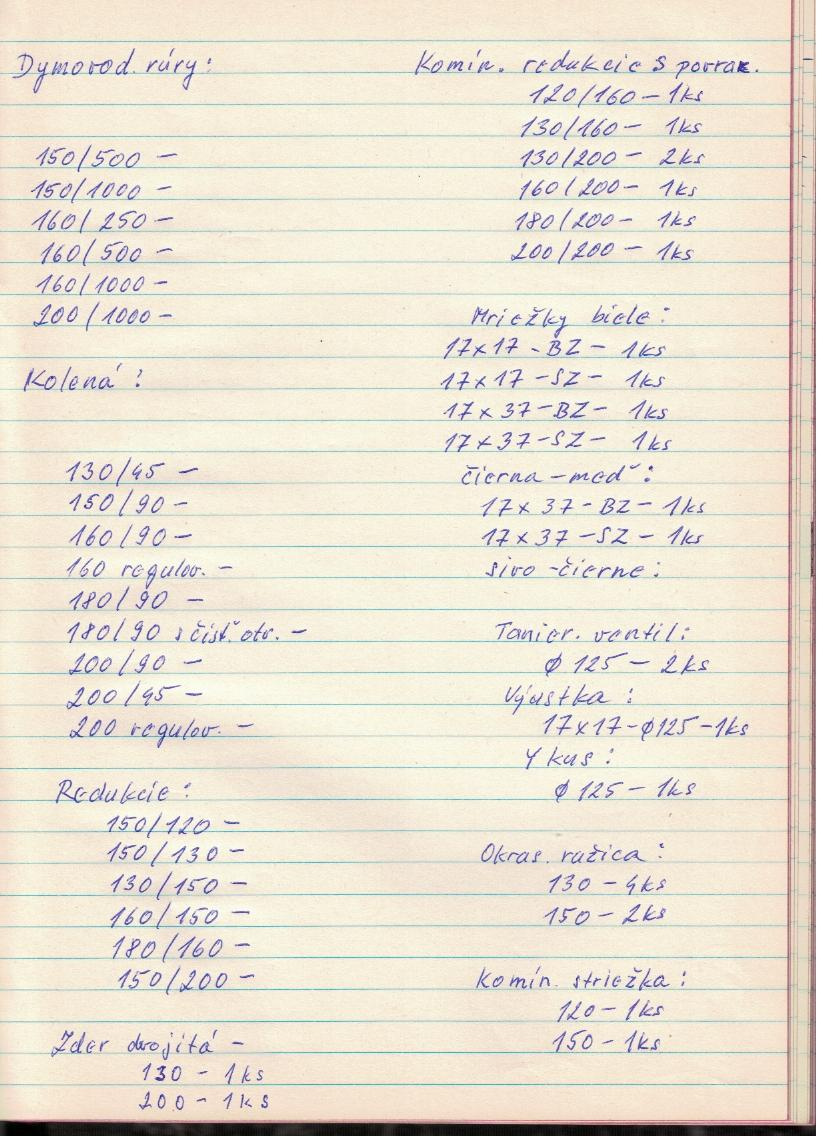 Dymovod. rúry:
150/500 –
150/1000 –
160/250 –
160/500 –
160/1000 –
200/1000 –
Kolená:
130/45 –
150/90 –
160/90 –
160 regulov. –
180/90 –
180/90 s čisť. otv. –
200/90 –
200/45 –
200 regulov. –
Redukcie:
150/120 –
150/130 –
130/150 –
160/150 –
180/160 –
150/200 –
Zder dvojitá –
130 – 1ks
200 – 1ks
Komín. redukcie s povraz.
120/160 – 1ks
130/160 – 1ks
130/200 – 2ks
160/200 – 1ks
180/200 – 1ks
200/200 – 1ks
Mriežky biele:
17x17 – BZ – 1ks
17x17 – SZ – 1ks
17x37 – BZ – 1ks
17x37 – SZ – 1ks
čierna – meď:
17x37 – BZ – 1ks
17x37 – SZ – 1ks
sivo – čierne:
Tanier. ventil:
ϕ 125 – 2ks
Výustka:
17x17 – ϕ125 – 1ks
Y kus:
ϕ 125 – 1ks
Okras. ružica:
130 – 4ks
150 – 2ks
Komín. striežka:
120 – 1ks
150 – 1ks